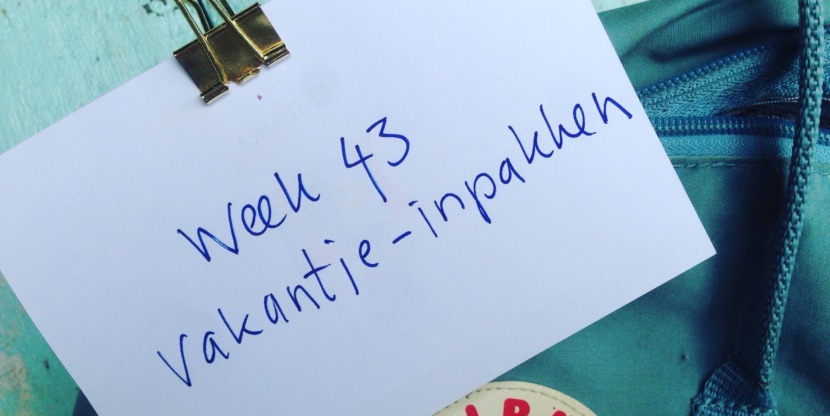 Week 43
vakantje-inpakken